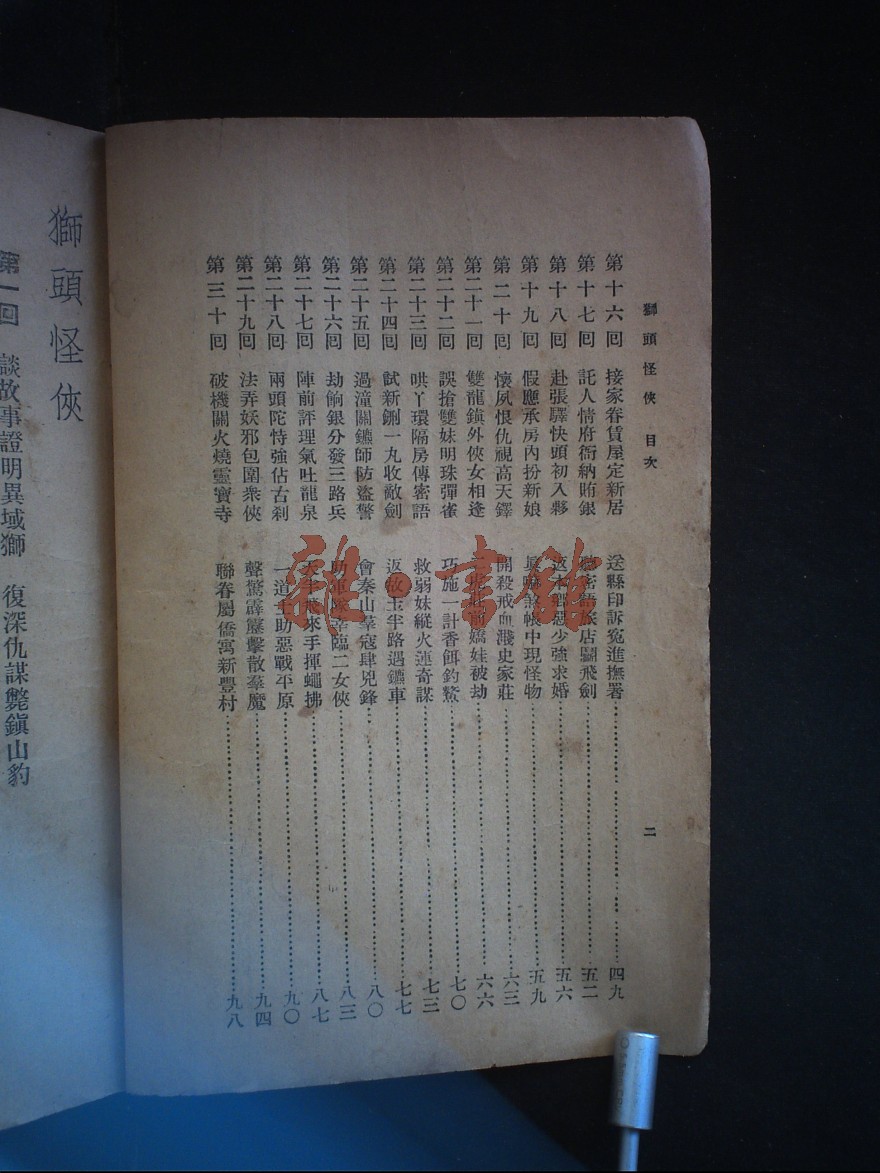 獅頭怪俠 目次
二
第十六回 接家眷賃屋定新居 送縣印訴冤進撫署 四九
第十七回 託人情府衙納賄銀 密語旅店鬭飛劍 五二
第十八回 赴張驛快頭初入夥 惡少強求婚 五六
第十九回 假應承房內扮新娘 帳中現怪物 五九
第二十回 懷夙恨仇視高天鐸 開殺戒血濺史家莊 六三
第二十一回 雙龍鎭外俠女相逢 前嬌娃被劫 六六
第二十二回 誤搶雙妹明珠彈雀 巧施一計香餌釣鰲 七〇
第二十三回 哄丫環隔房傳密語 救弱妹縱火蓮奇謀 七三
第二十四回 試新鍘一九收敵劍 返故玉半路遇鑣車 七七
第二十五回 過潼關鑣師防盜警 會秦山羣寇肆兇鋒 八〇
第二十六回 劫餉銀分發三路兵 臨二女俠 八三
第二十七回 陣前評理氣吐龍泉 來手揮蠅拂 八七
第二十八回 兩頭陀恃強佔古刹 一道士助惡戰平原 九〇
第二十九回 法弄妖邪包圍衆俠 聲驚霹靂擊散羣魔 九四
第三十回 破機關火燒靈寶寺 聯眷屬僑寓新豐村 九八
雜·書館
獅頭怪俠
第一回 談故事證明異域獅 復深仇謀斃鎭山豹